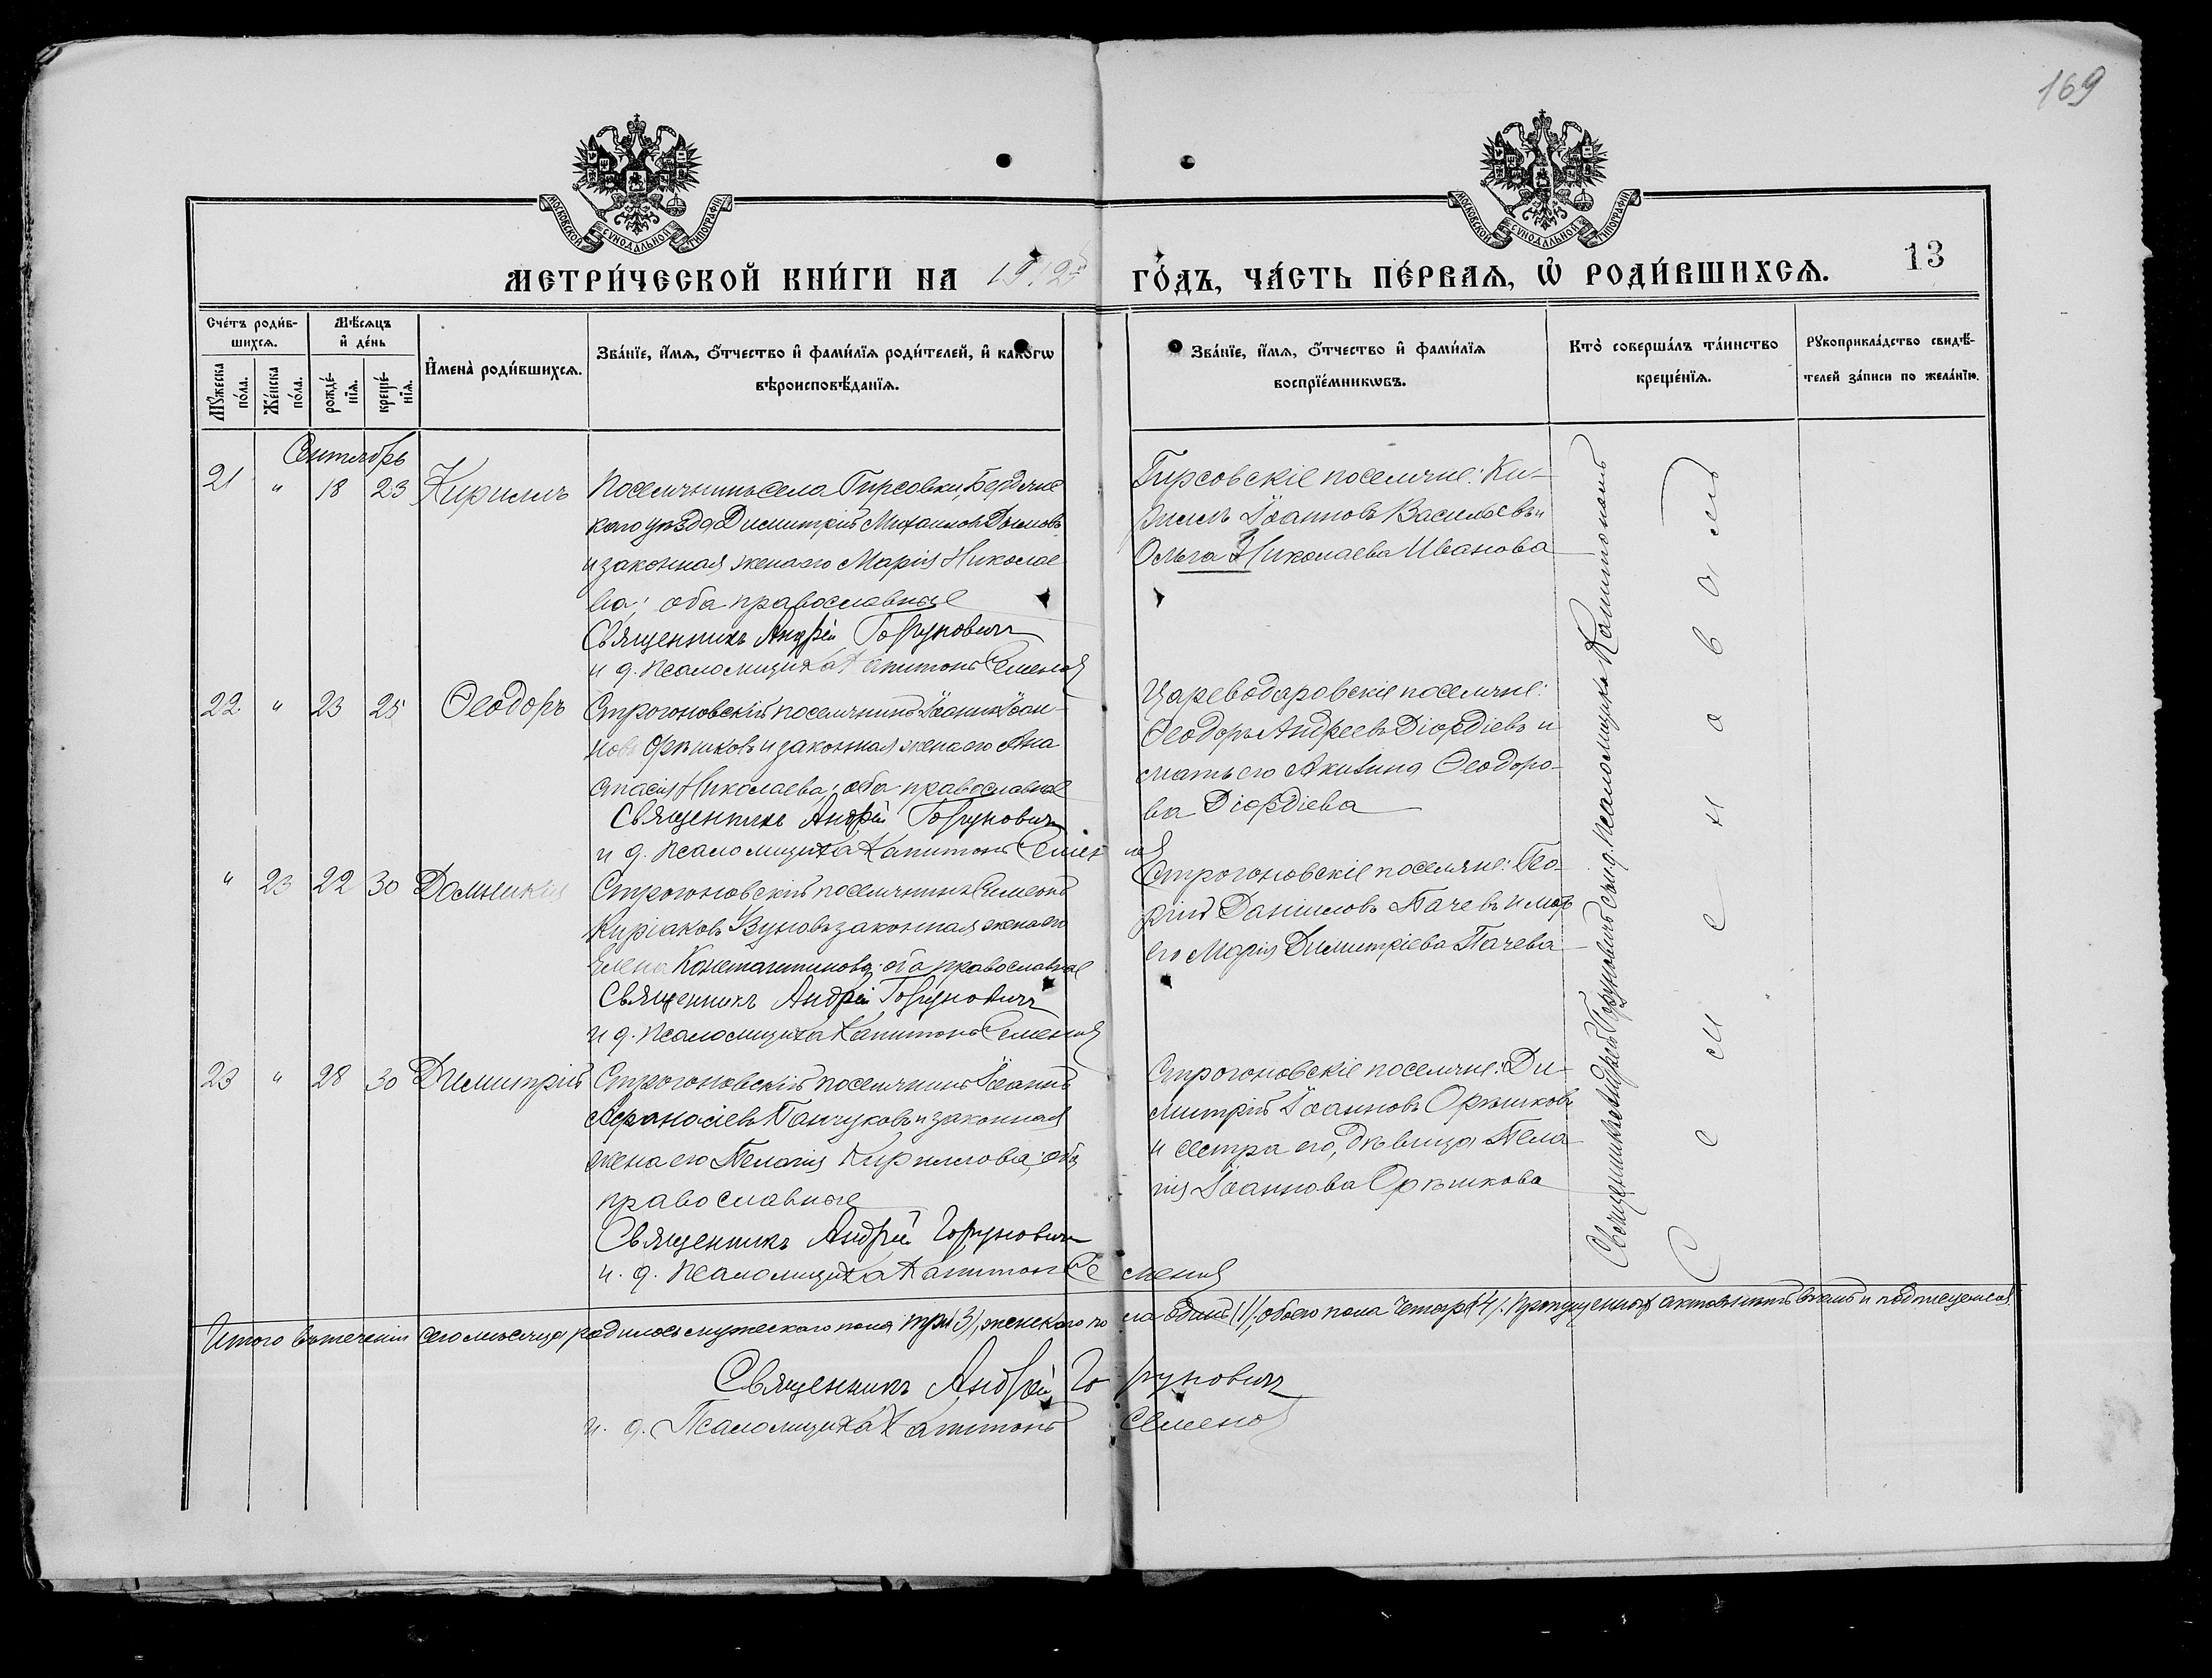 169
МОСКОВСКОЙ СУНОДАЛЬНОЙ ТИПОГРАФІИ
МОСКОВСКОЙ СУНОДАЛЬНОЙ ТИПОГРАФІИ
МЕТРИ́ЧЕСКОЙ КНИ́ГИ НА 1912й ГО́ДЪ, ЧА́СТЬ ПЕ́РВАѦ, Ѡ РОДИ́ВШИХСѦ. 13
Сче́тъ роди́в-
шихсѧ.
Мꙋ́жеска
по́ла.
Же́нска
по́ла.
Мѣ́сѧцъ
и҆ де́нь
рожде́-
нїѧ.
креще́-
нїѧ.
И҆мена̀ роди́вшихсѧ.
Зва́нїе, и҆́мѧ, ѻ҆́тчество и҆ фами́лїѧ роди́телей, и҆ какѡ́гѡ
вѣроисповѣ́данїѧ.
Зва́нїе, и҆́мѧ, ѻ҆́тчество и҆ фами́лїѧ
воспрїе́мникѡвъ.
Кто̀ соверша́лъ та́инство
креще́нїѧ.
Рꙋкоприкла́дство свидѣ́-
телей за́писи по жела́нїю.
Сентябрь
21 " 18 23 Кириллъ
Поселянинъ села Гирсовки, Бердянс
каго уѣзда Димитрій Михаиловъ Дымовъ
и законная жена его Марія Николае
ва; оба православные
Священникъ Андрей Горунович
и д. псаломщика Капитонъ Семенов
Гирсовскіе поселяне: Ки-
риллъ Іоанновъ Васильевъ и
Ольга Николаева Иванова
22 " 23 25 Ѳеодоръ
Строгоновскій поселянинъ Іоаннъ Іоан-
новъ Орѣшковъ и законная жена его Ана
стасія Николаева; оба православные
Священникъ Андрей Горунович
и д. псаломщика Капитонъ Семенов
Цареводаровскіе поселяне:
Ѳеодоръ Андреевъ Діордіевъ и
мать его Акилина Ѳеодоро-
ва Діордіева
" 23 22 30 Домникія
Строгоновскій поселянинъ Симеонъ
Киріаковъ Вуновъ законная жена его
Елена Константинова; оба православные
Священникъ Андрей Горунович
и д. псаломщика Капитонъ Семенов
Строгоновскіе поселяне: Гео-
ргій Даніиловъ Пачевъ и мать
его Марія Димитріева Пачева
23 " 28 30 Димитрій
Строгоновскій поселянинъ Іоаннъ
Афанасіевъ Панчуковъ и законная
жена его Пелагія Кириллова; оба
православные
Священникъ Андрей Горунович
и. д. псаломщика Капитонъ Семенов
Строгоновскіе поселяне: Ди-
митрій Іоанновъ Орѣшковъ
и сестра его, дѣвица Пела
гія Іоаннова Орѣшкова
Священникъ Андрей Горуновичъ съ и. д. псаломщика Капитономъ
Семеновымъ
Итого въ теченіи сего мѣсяца родилось мужескаго пола три (3), женскаго пола одинъ (1), обоего пола четыре (4).
Священникъ Андрей Горунович
и. д. Псаломщика Капитонъ Семенов